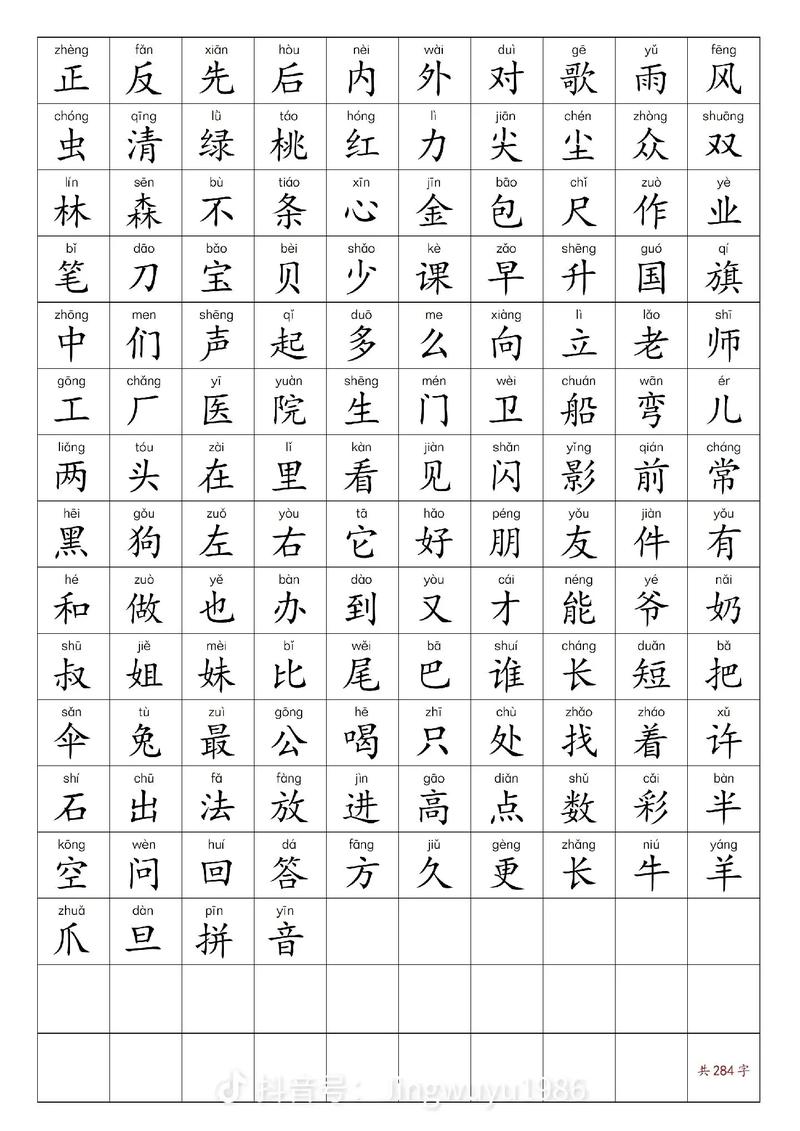 zhèng fǎn xiān hòu nèi wài duì gē yǔ fēng
正 反 先 后 内 外 对 歌 雨 风
chóng qīng lǜ táo hóng lì jiān chén zhòng shuāng
虫 清 绿 桃 红 力 尖 尘 众 双
lín sēn bù tiáo xīn jīn bāo chǐ zuò yè
林 森 不 条 心 金 包 尺 作 业
bǐ dāo bǎo bèi shǎo kè zǎo shēng guó qí
笔 刀 宝 贝 少 课 早 升 国 旗
zhōng men shēng qǐ duō me xiàng lì lǎo shī
中 们 声 起 多 么 向 立 老 师
gōng chǎng yī yuàn shēng mén wèi chuán wān ér
工 厂 医 院 生 门 卫 船 弯 儿
liǎng tóu zài lǐ kàn jiàn shǎn yǐng qián cháng
两 头 在 里 看 见 闪 影 前 常
hēi gǒu zuǒ yòu tā hǎo péng yǒu jiàn yǒu
黑 狗 左 右 它 好 朋 友 件 有
hé zuò yě bàn dào yòu cái néng yé nǎi
和 做 也 办 到 又 才 能 爷 奶
shū jiě mèi bǐ wěi bā shuí cháng duǎn bǎ
叔 姐 妹 比 尾 巴 谁 长 短 把
sǎn tù zuì gōng hē zhī chù zhǎo zháo xǔ
伞 兔 最 公 喝 只 处 找 着 许
shí chū fǎ fàng jìn gāo diǎn shǔ cǎi bàn
石 出 法 放 进 高 点 数 彩 半
kōng wèn huí dá fāng jiǔ gèng zhǎng niú yáng
空 问 回 答 方 久 更 长 牛 羊
zhuǎ dàn pīn yīn
爪 旦 拼 音
共 284 字
抖音号： Jingwuyu1986